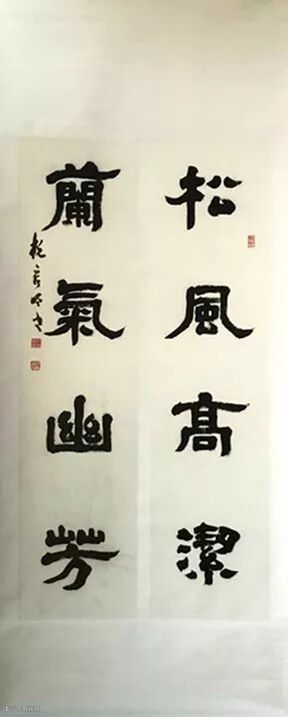 松風高潔
蘭氣幽芳